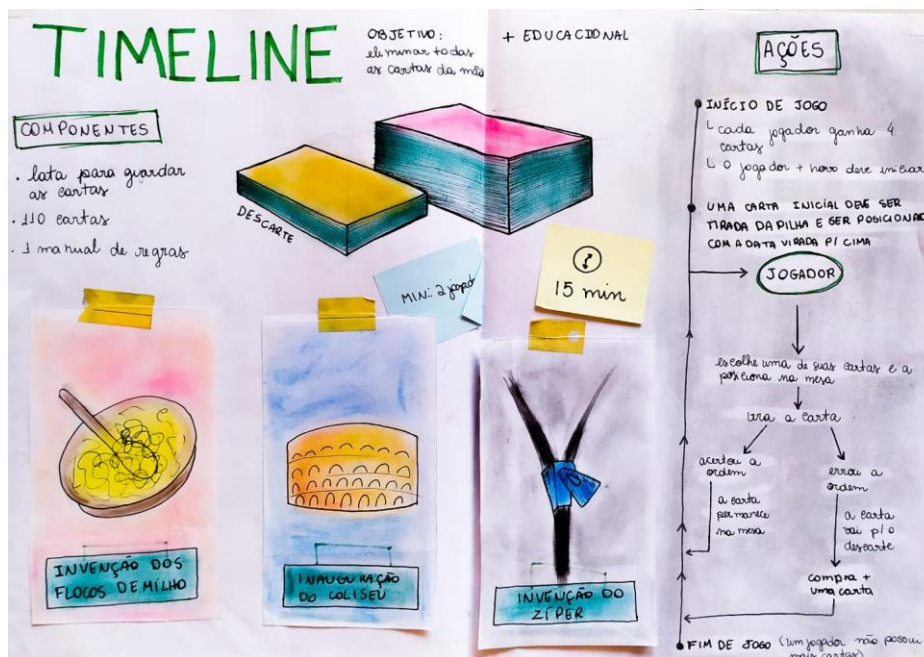 TIMELINE
OBJETIVO:
eliminar todas
as cartas da mão
+ EDUCACIONAL
COMPONENTES
• lata para guardar
as cartas
• 110 cartas
• 1 manual de regras
DESCARTE
MIN: 2 jogad
15 min
INVENÇÃO DOS
FLOCOS DE MILHO
INAUGURAÇÃO
DO COLISEU
INVENÇÃO DO
ZÍPER
AÇÕES
INÍCIO DE JOGO
└ cada jogador ganha 4
cartas
└ O jogador + novo deve iniciar
UMA CARTA INICIAL DEVE SER
TIRADA DA PILHA E SER POSICIONAD
COM A DATA VIRADA P/ CIMA
JOGADOR
escolhe uma de suas cartas e a
posiciona na mesa
vira a carta
acertou a
ordem
a carta
permanece
na mesa
errou a
ordem
a carta
vai p/ o
descarte
compra +
uma carta
FIM DE JOGO (um jogador não possui
mais cartas)